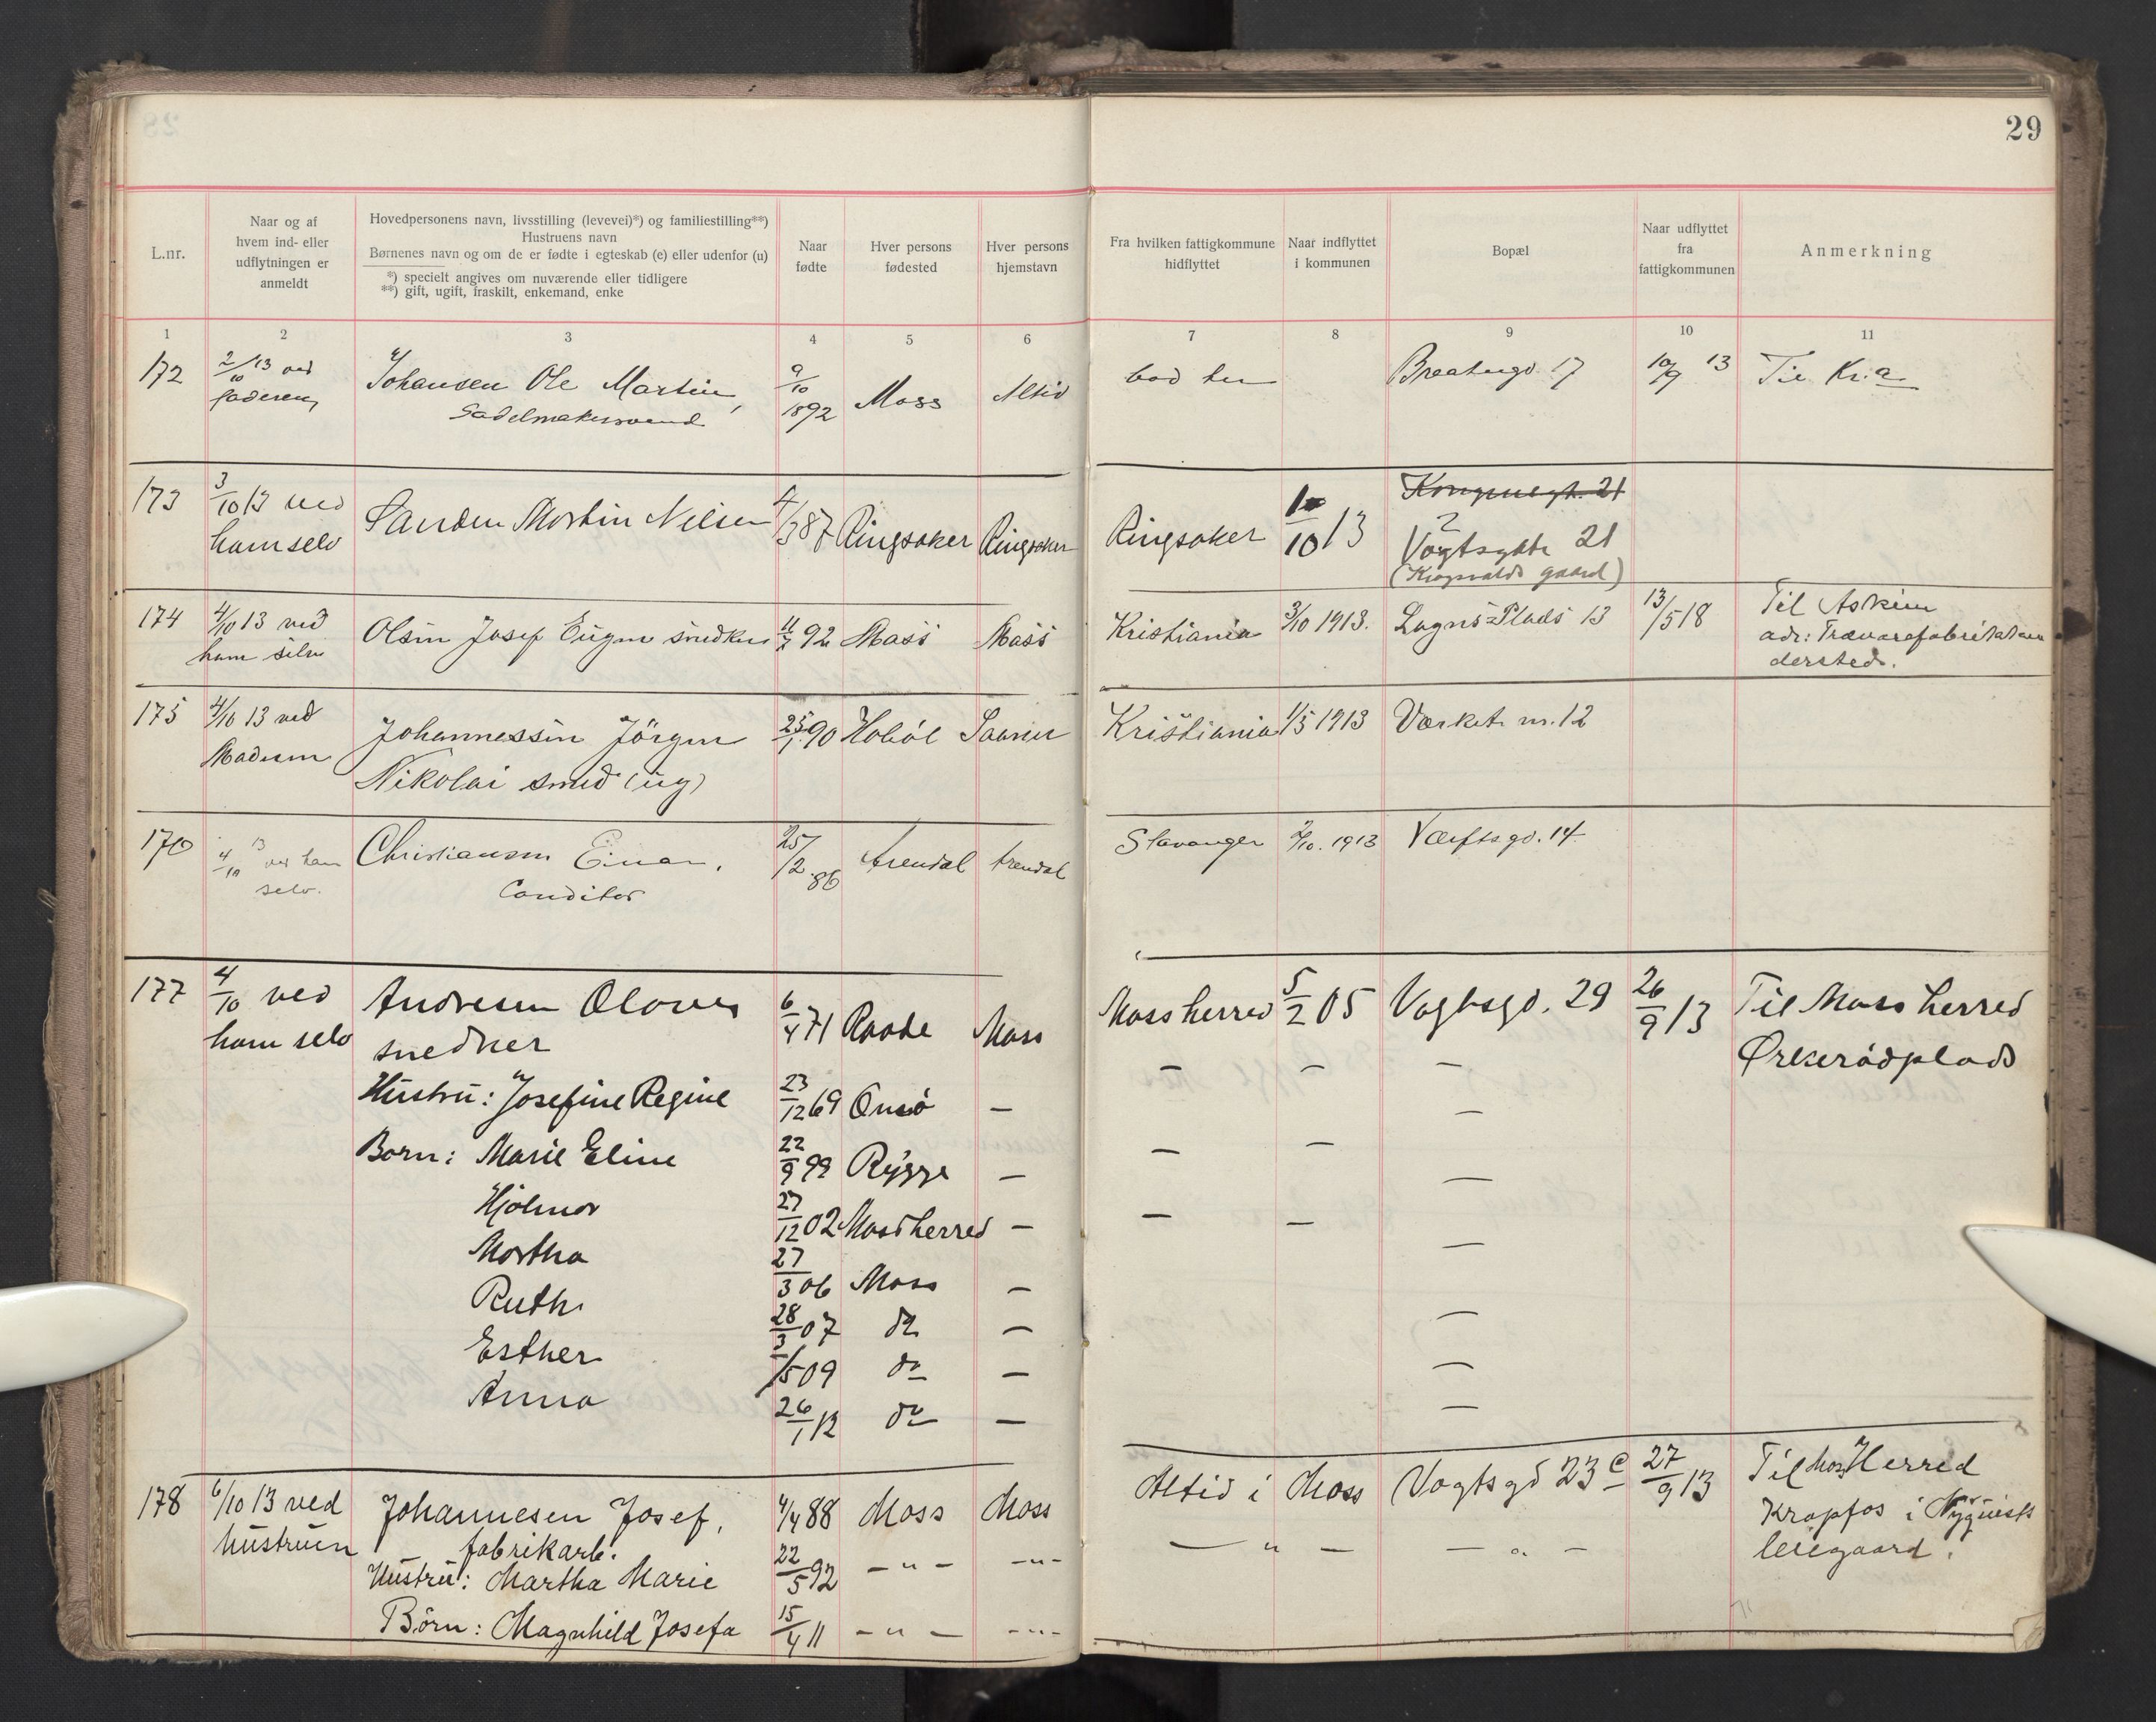 29
L.nr.
Naar og af hvem ind- eller udflytningen er anmeldt
Hovedpersonens navn, livsstilling (levevei)*) og familiestilling**)
Hustruens navn
Børnenes navn og om de er fødte i egteskab (e) eller udenfor (u)
*) specielt angives om nuværende eller tidligere
**) gift, ugift, fraskilt, enkemand, enke
Naar fødte
Hver persons fødested
Hver persons hjemstavn
Fra hvilken fattigkommune hidflyttet
Naar indflyttet i kommunen
Bopæl
Naar udflyttet fra fattigkommunen
Anmerkning
1 2 3 4 5 6 7 8 9 10 11
172 2/10 13 ved Johansen Ole Martin, 9/10 1892 Moss Altid bod her 17 10/9 13 Til Kr.a.
faderen Sadelmakersvend
173 3/10 13 ved Sanden Martin Nilsen 4/3 87 Ringsaker Ringsaker Ringsaker 1/10 13 Kongensgt. 21
ham selv Vogtsgate 21
(Krogvolds gaard)
174 4/10 13 ved Olsen Josef Eugen snedker 11/7 92 Moss Moss Kristiania 3/10 1913. Logns Plads 13 13/5 18 Til Askim
ham selv adr: Trævarefabrikken
dersteds.
175 4/10 13 ved Johannessen Jörgen 25/1 90 Hoböl Saaner Kristiania 1/5 1913 Værket nr. 12
Madsen Nikolai smed (ug)
176 4/10 13 ved ham Christiansen Einar, 25/2 86 Arendal Arendal Stavanger 2/10. 1913 Værftsgd. 14.
selv. Conditor
177 4/10 ved Andresen Olaves 6/4 71 Raade Moss Moss herred 5/2 05 Vogtsgd. 29 26/9 13 Til Moss herred
ham selv snedker — — — Ørkerødplads
Hustru: Josefine Regine 23/12 69 Onsö — —
Børn: Marie Eline 22/9 99 Rygge — — — —
Hjalmar 27/12 02 Moss herred — — — —
Martha 27/3 06 Moss — —
Ruth 28/3 07 do — —
Esther /5 09 do — —
Anna 26/1 12 do —
178 6/10 13 ved Johannesen Josef, 4/4 88 Moss Moss Altid i Moss Vogtsgd 23 c 27/9 13 Til Moss Herred
hustruen fabrikarb. Kropfos i Nyquists
Hustru: Martha Marie 22/5 92 — " — — " — — " — — " — leiegaard.
Börn: Magnhild Josefa 15/4 11 — " — — " —